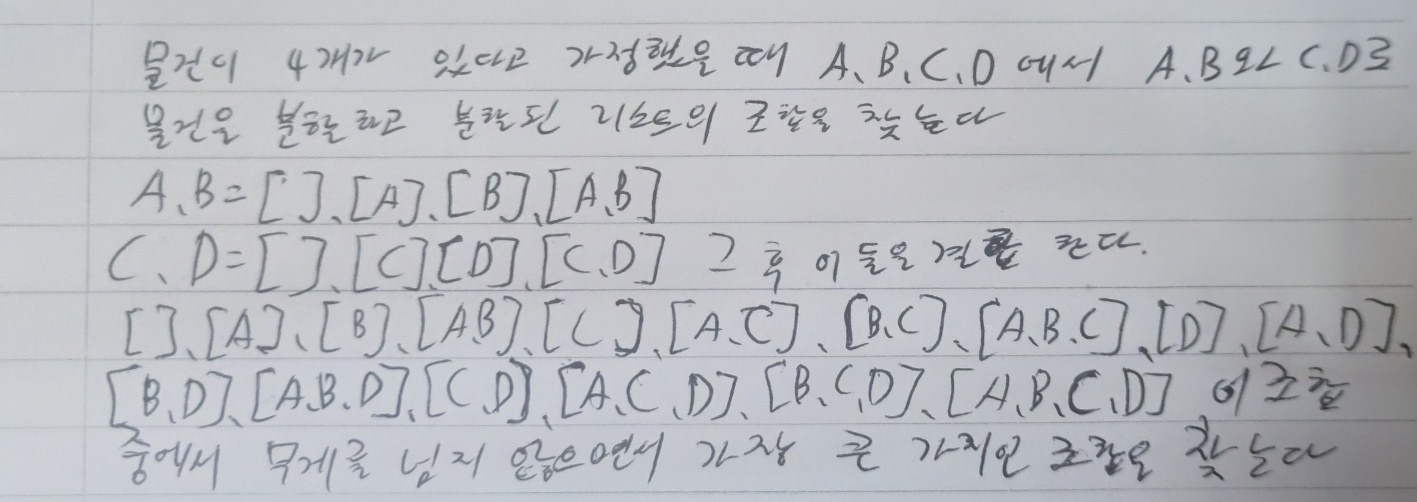 물건이 4개가 있다고 가정했을 때 A, B, C, D 에서 A, B 와 C, D로
물건을 분할하고 분할된 리스트의 조합을 찾는다
A, B = [ ], [A], [B], [A,B]
C, D = [ ], [C] [D], [C,D] 그 후 이들을 결합 한다.
[ ], [A], [B], [A,B], [C], [A,C], [B,C], [A,B,C], [D], [A,D],
[B,D], [A,B,D], [C,D], [A,C,D], [B,C,D], [A,B,C,D] 이 조합
중에서 무게를 넘지 않으면서 가장 큰 가치인 조합을 찾는다